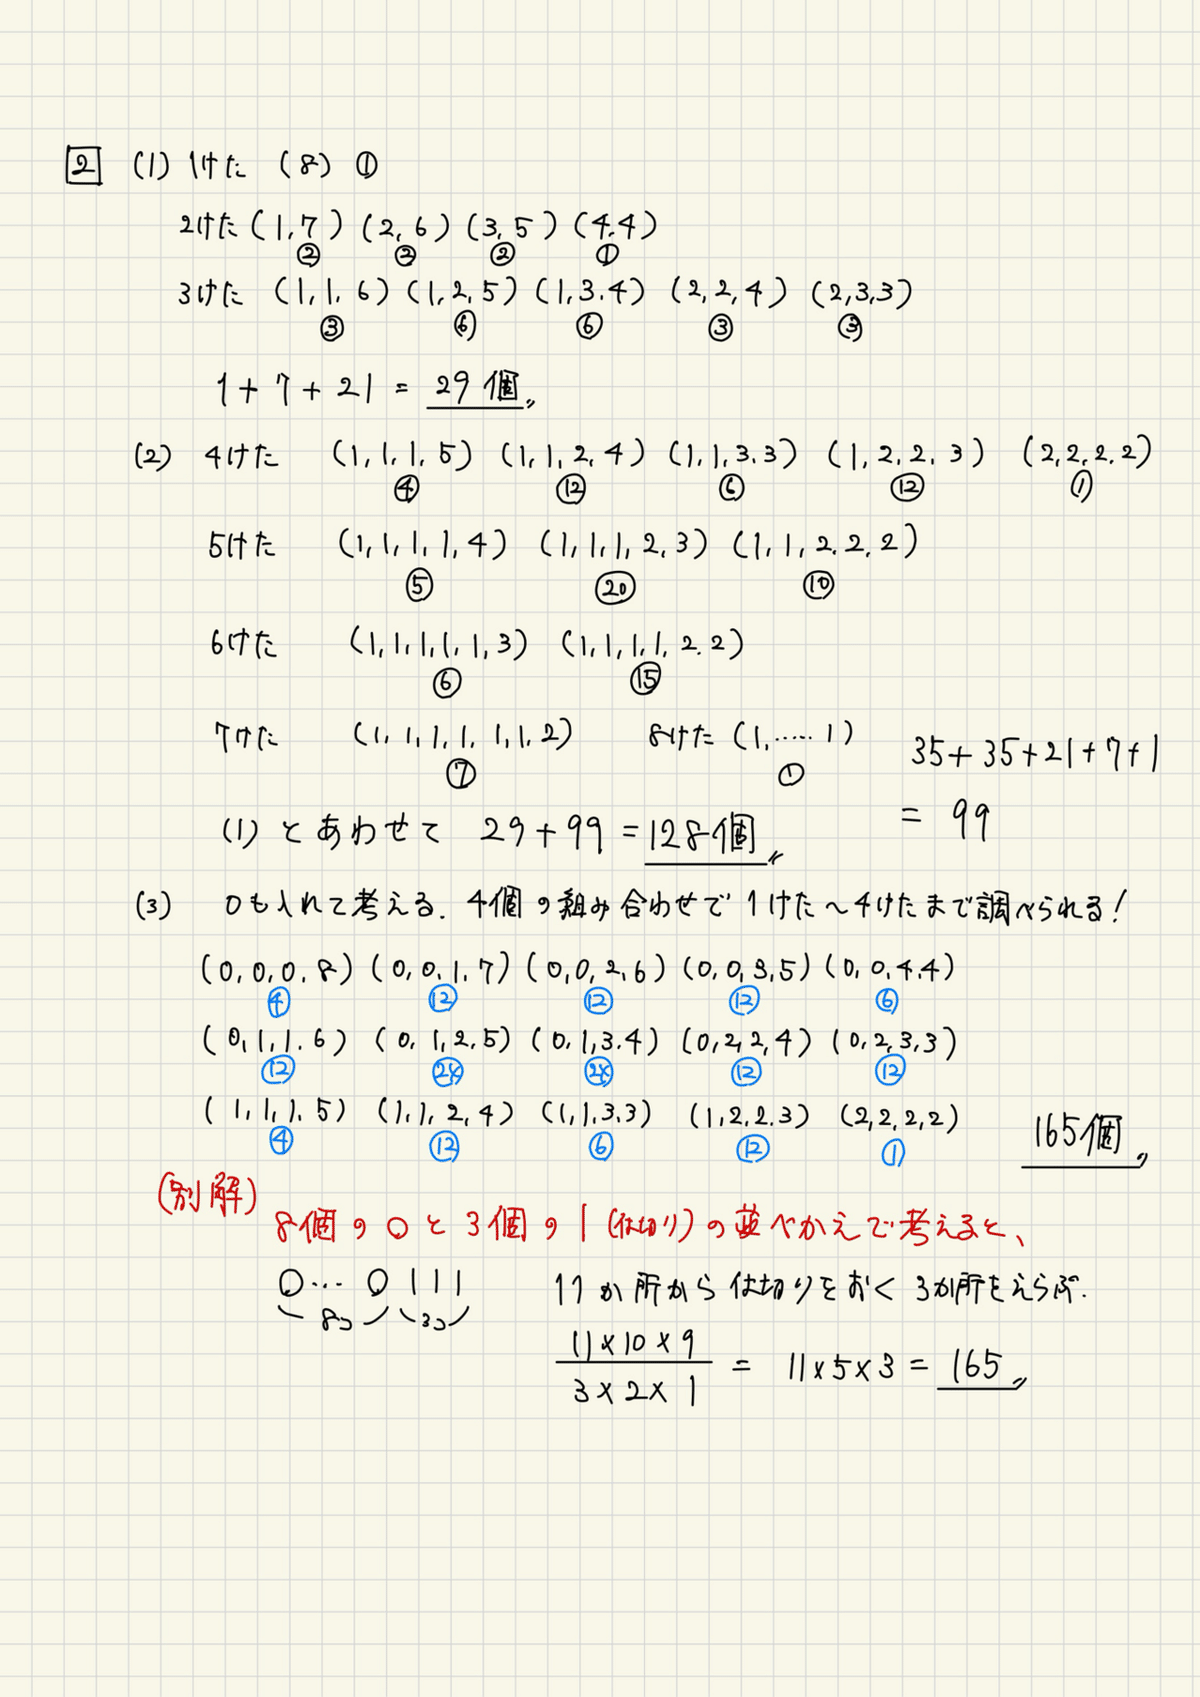 2 (1) 1けた (8) ①
2けた (1,7) (2,6) (3,5) (4,4)
② ② ② ①
3けた (1,1,6) (1,2,5) (1,3,4) (2,2,4) (2,3,3)
③ ⑥ ⑥ ③ ③
1+7+21 = 29個
(2) 4けた (1,1,1,5) (1,1,2,4) (1,1,3,3) (1,2,2,3) (2,2,2,2)
④ ⑫ ⑥ ⑫ ①
5けた (1,1,1,1,4) (1,1,1,2,3) (1,1,2,2,2)
⑤ ⑳ ⑩
6けた (1,1,1,1,1,3) (1,1,1,1,2,2)
⑥ ⑮
7けた (1,1,1,1,1,1,2) 8けた (1,……1)
⑦ ①
35+35+21+7+1
= 99
(1) とあわせて 29+99 = 128個
(3) 0も入れて考える. 4個の組み合わせで 1けた～4けたまで調べられる!
(0,0,0,8) (0,0,1,7) (0,0,2,6) (0,0,3,5) (0,0,4,4)
④ ⑫ ⑫ ⑫ ⑥
(0,1,1,6) (0,1,2,5) (0,1,3,4) (0,2,2,4) (0,2,3,3)
⑫ ㉔ ㉔ ⑫ ⑫
(1,1,1,5) (1,1,2,4) (1,1,3,3) (1,2,2,3) (2,2,2,2)
④ ⑫ ⑥ ⑫ ①
165個
(別解)
8個の○と3個の1(仕切り)の並べかえで考えると、
○…○ | | |
8コ 3コ
11か所から仕切りをおく 3か所をえらぶ.
11×10×9
3×2×1
= 11×5×3 = 165